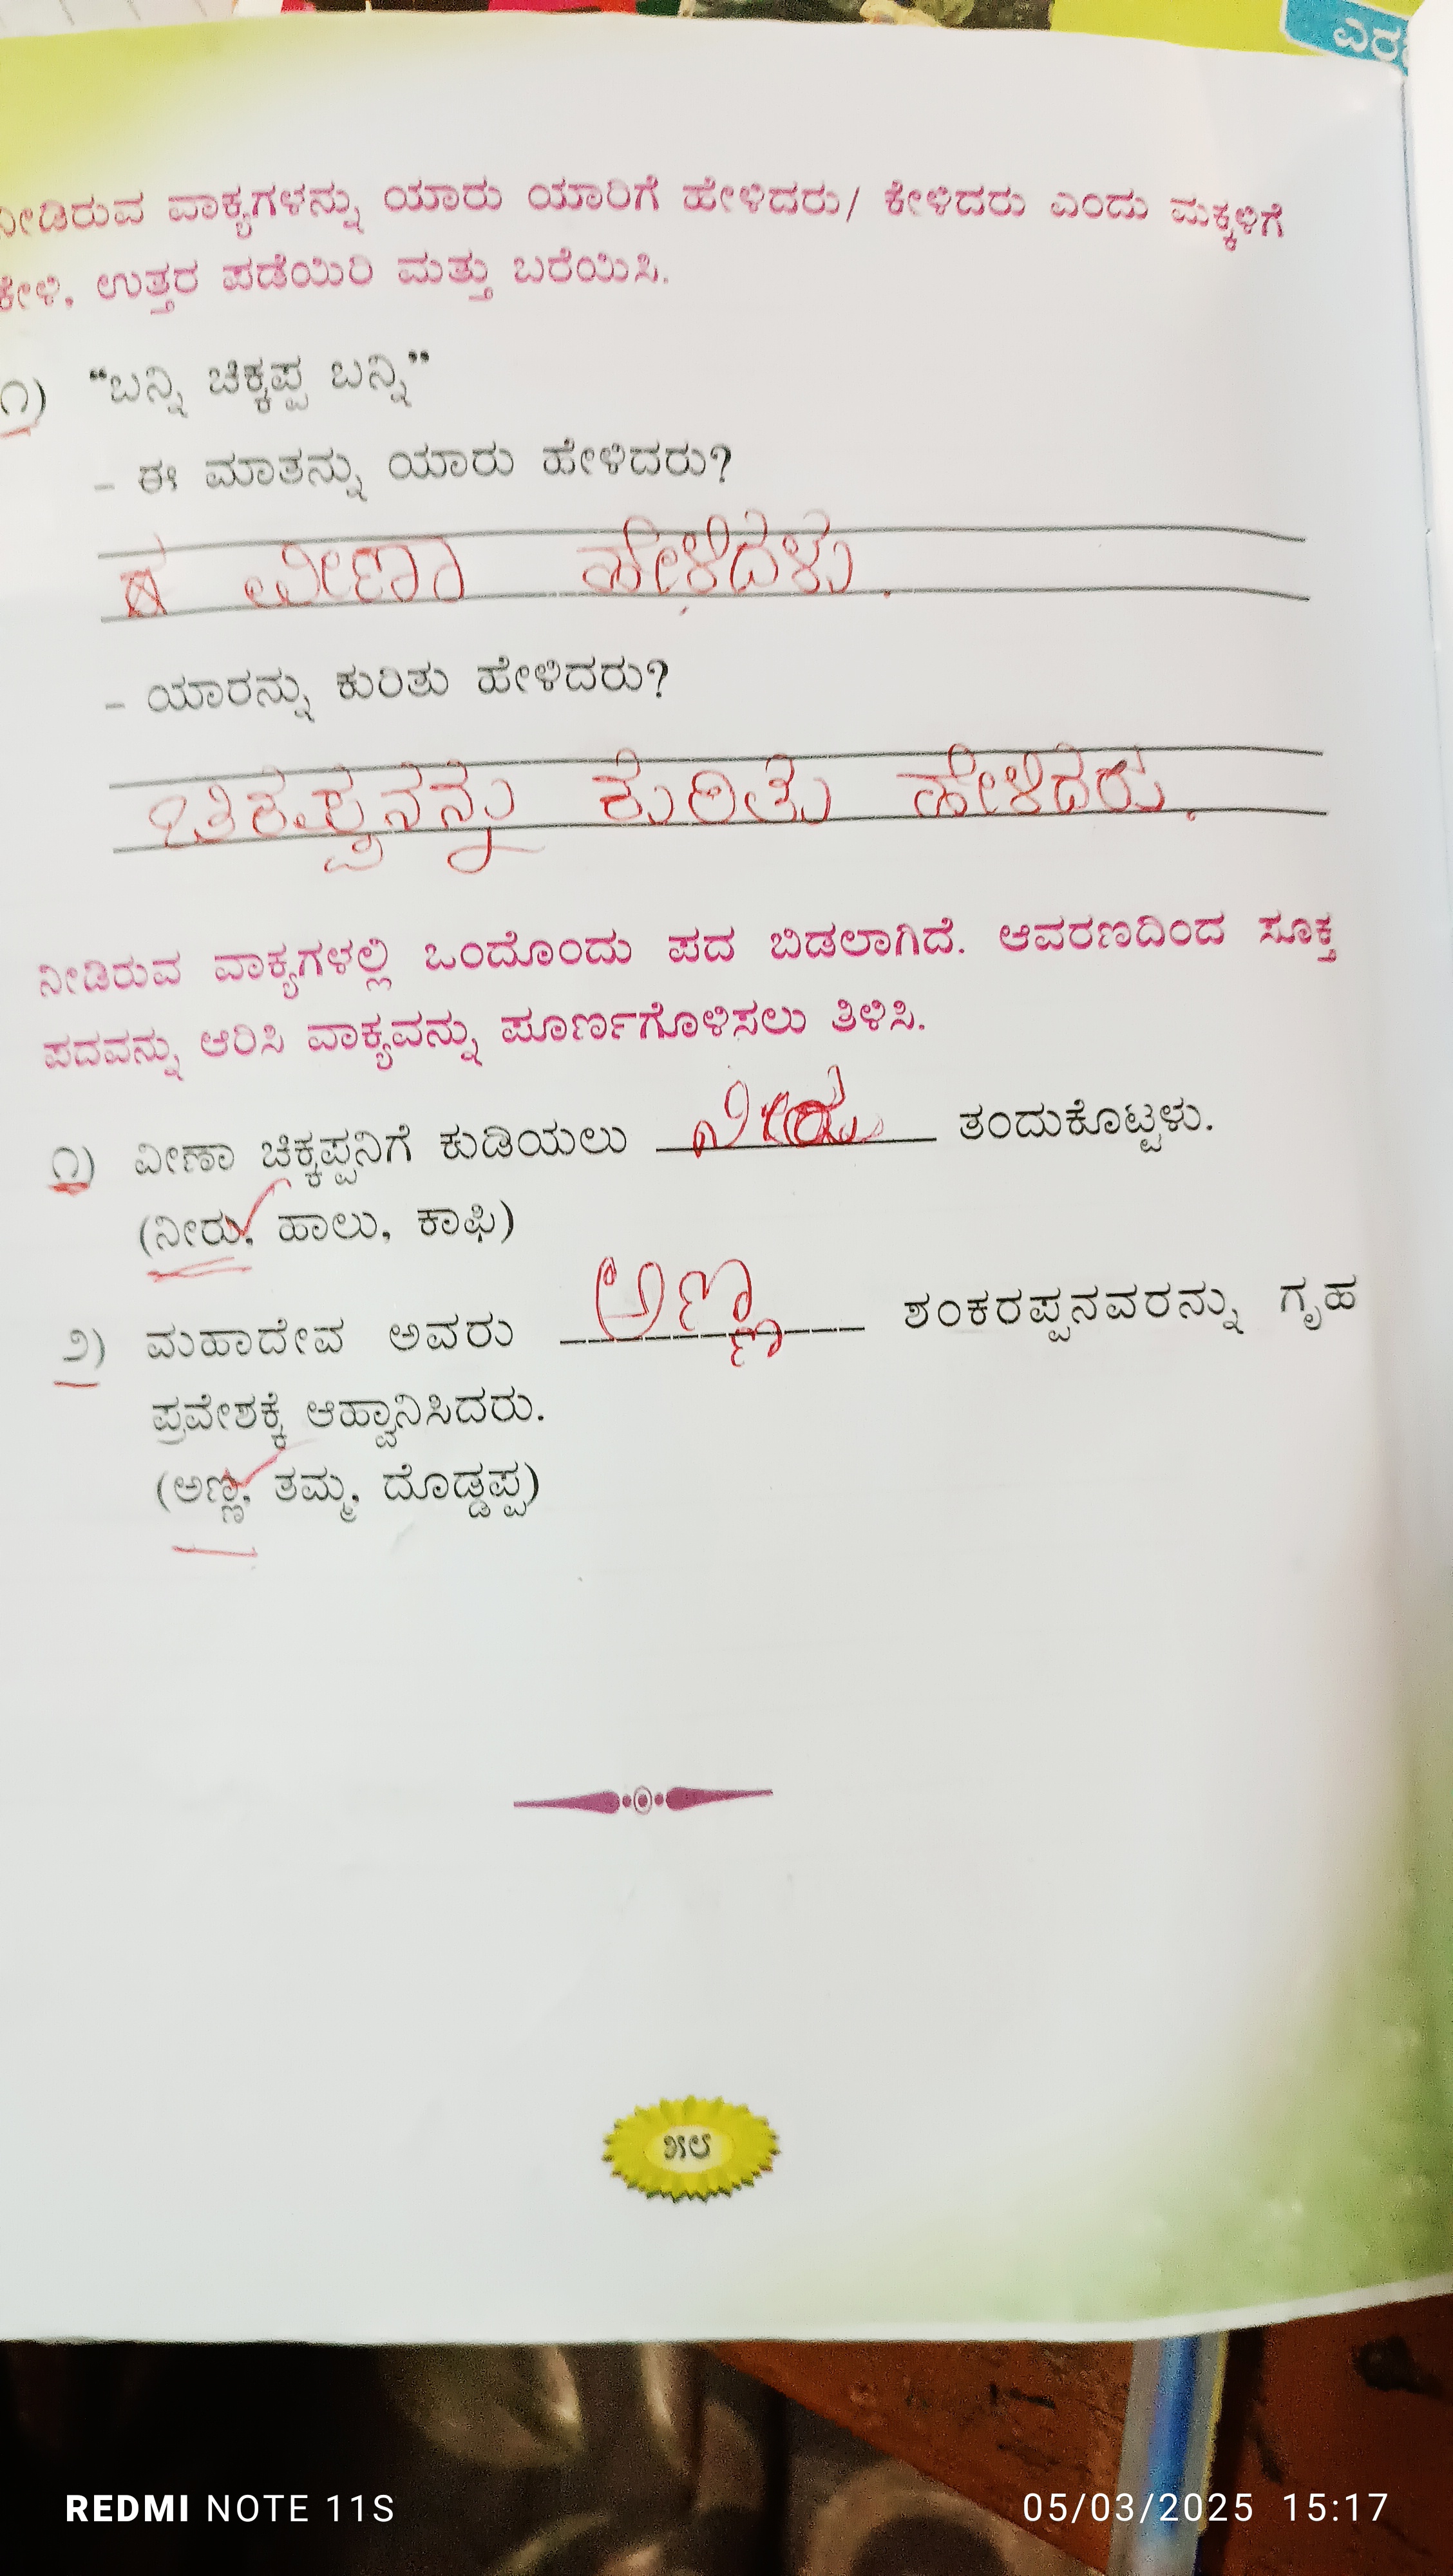 ಎರ
ನೀಡಿರುವ ವಾಕ್ಯಗಳನ್ನು ಯಾರು ಯಾರಿಗೆ ಹೇಳಿದರು/ ಕೇಳಿದರು ಎಂದು ಮಕ್ಕಳಿಗೆ
ಕೇಳಿ, ಉತ್ತರ ಪಡೆಯಿರಿ ಮತ್ತು ಬರೆಯಿಸಿ.
೧) “ಬನ್ನಿ ಚಿಕ್ಕಪ್ಪ ಬನ್ನಿ”
– ಈ ಮಾತನ್ನು ಯಾರು ಹೇಳಿದರು?
ವೀಣಾ ಹೇಳಿದಳು.
– ಯಾರನ್ನು ಕುರಿತು ಹೇಳಿದರು?
ಚಿಕಪ್ಪನನ್ನು ಕುರಿತು ಹೇಳಿದರು.
ನೀಡಿರುವ ವಾಕ್ಯಗಳಲ್ಲಿ ಒಂದೊಂದು ಪದ ಬಿಡಲಾಗಿದೆ. ಆವರಣದಿಂದ ಸೂಕ್ತ
ಪದವನ್ನು ಆರಿಸಿ ವಾಕ್ಯವನ್ನು ಪೂರ್ಣಗೊಳಿಸಲು ತಿಳಿಸಿ.
೧) ವೀಣಾ ಚಿಕ್ಕಪ್ಪನಿಗೆ ಕುಡಿಯಲು ನೀರು ತಂದುಕೊಟ್ಟಳು.
(ನೀರು, ಹಾಲು, ಕಾಫಿ)
೨) ಮಹಾದೇವ ಅವರು ಅಣ್ಣ ಶಂಕರಪ್ಪನವರನ್ನು ಗೃಹ
ಪ್ರವೇಶಕ್ಕೆ ಆಹ್ವಾನಿಸಿದರು.
(ಅಣ್ಣ, ತಮ್ಮ, ದೊಡ್ಡಪ್ಪ)
೫೮
REDMI NOTE 11S
05/03/2025 15:17